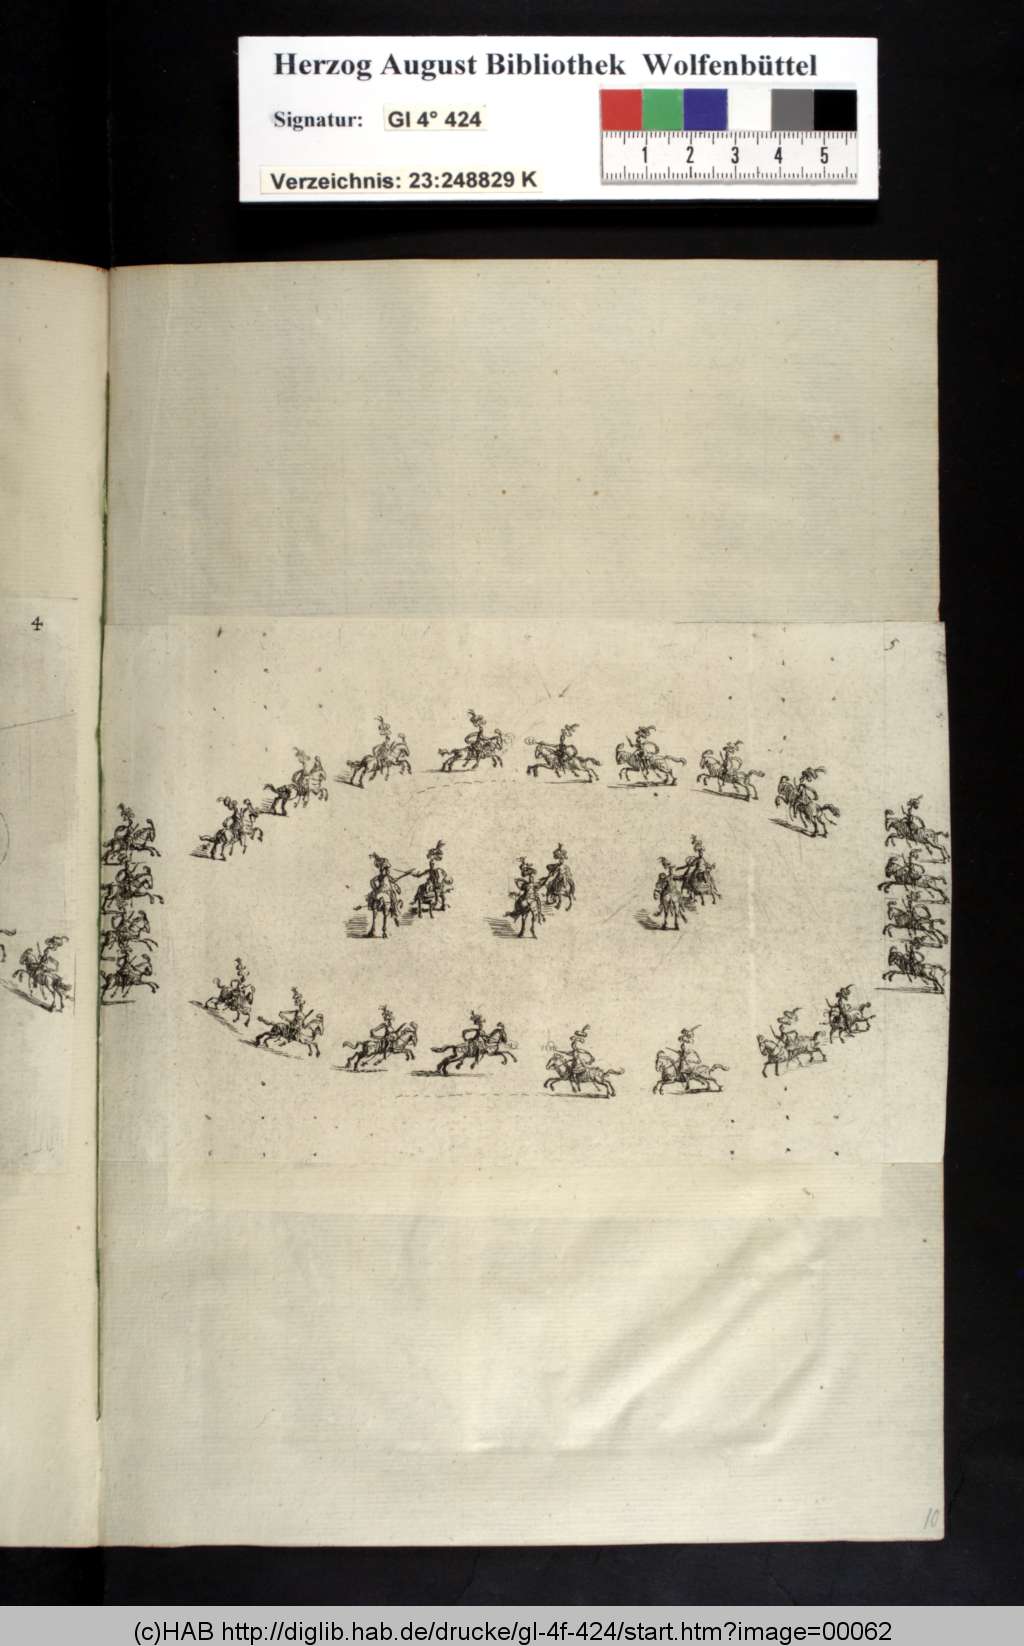 Herzog August Bibliothek Wolfenbüttel
Signatur: Gl 4° 424
Verzeichnis: 23:248829 K
1 2 3 4 5
4
5
10
(c)HAB http://diglib.hab.de/drucke/gl-4f-424/start.htm?image=00062